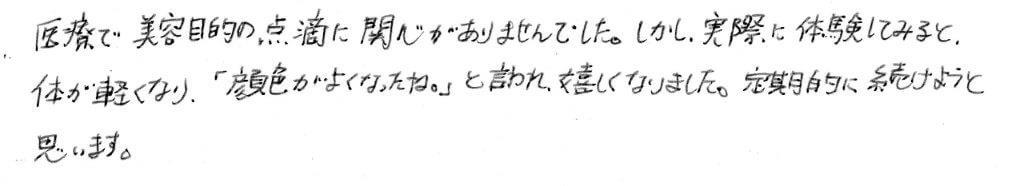 医療で美容目的の点滴に関心がありませんでした。しかし、実際に体験してみると、
体が軽くなり、「顔色がよくなったね。」と言われ、嬉しくなりました。定期的に続けようと
思います。